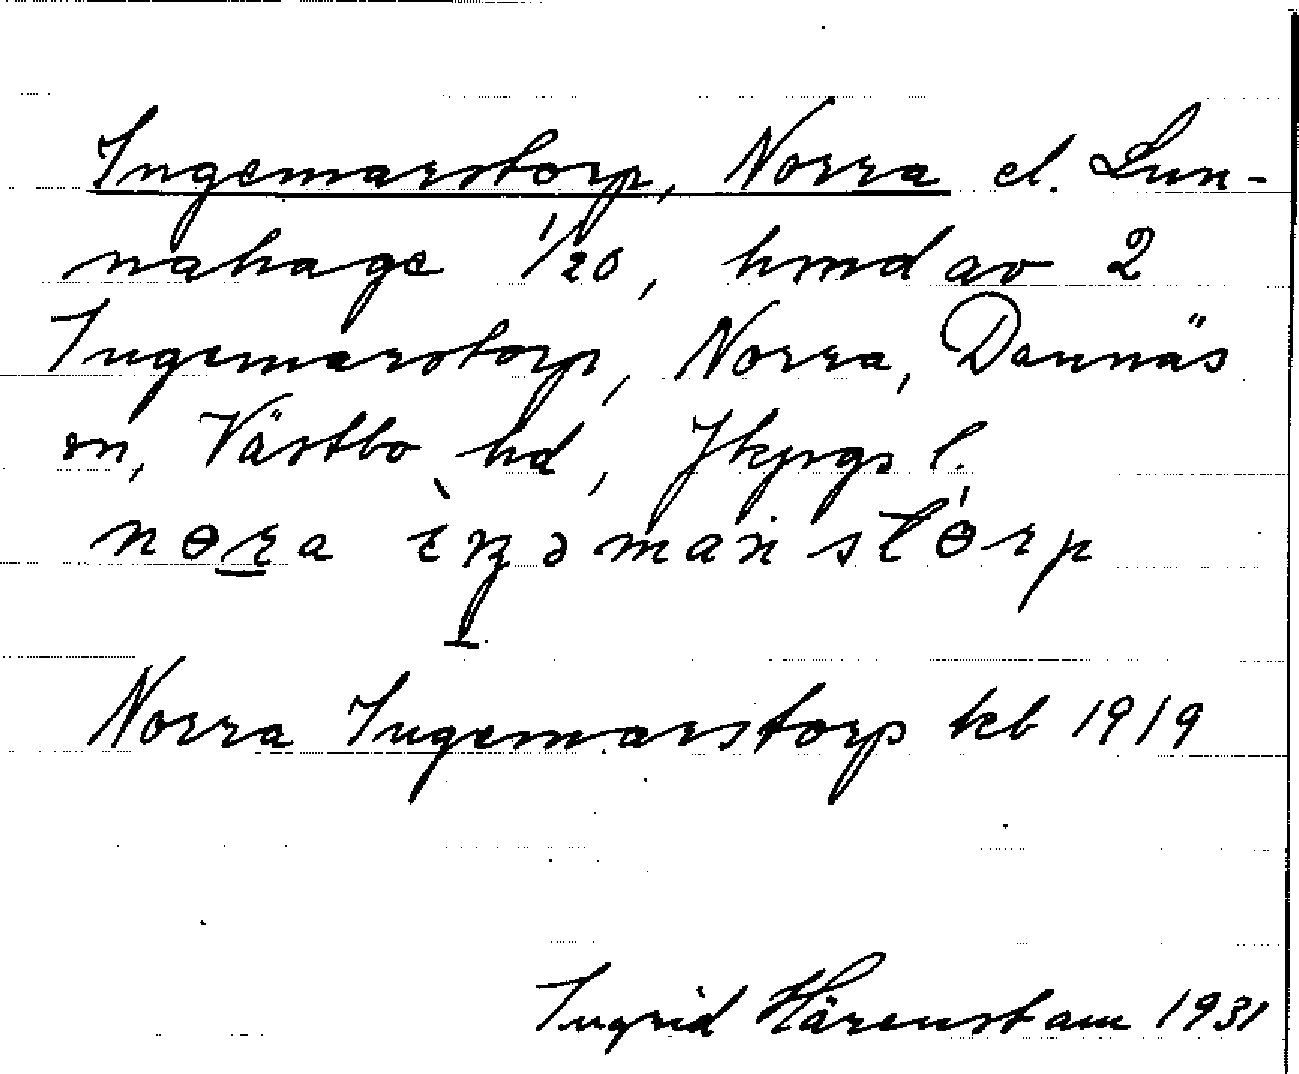 Ingemarstorp, Norra el. Lun-
nahage 1/20, hmd av 2
Ingemarstorp, Norra, Dannäs
sn, Västbo hd, Jkpgs l.
Norra Ingemarstorp kb 1919
Ingrid Härenstam 1931